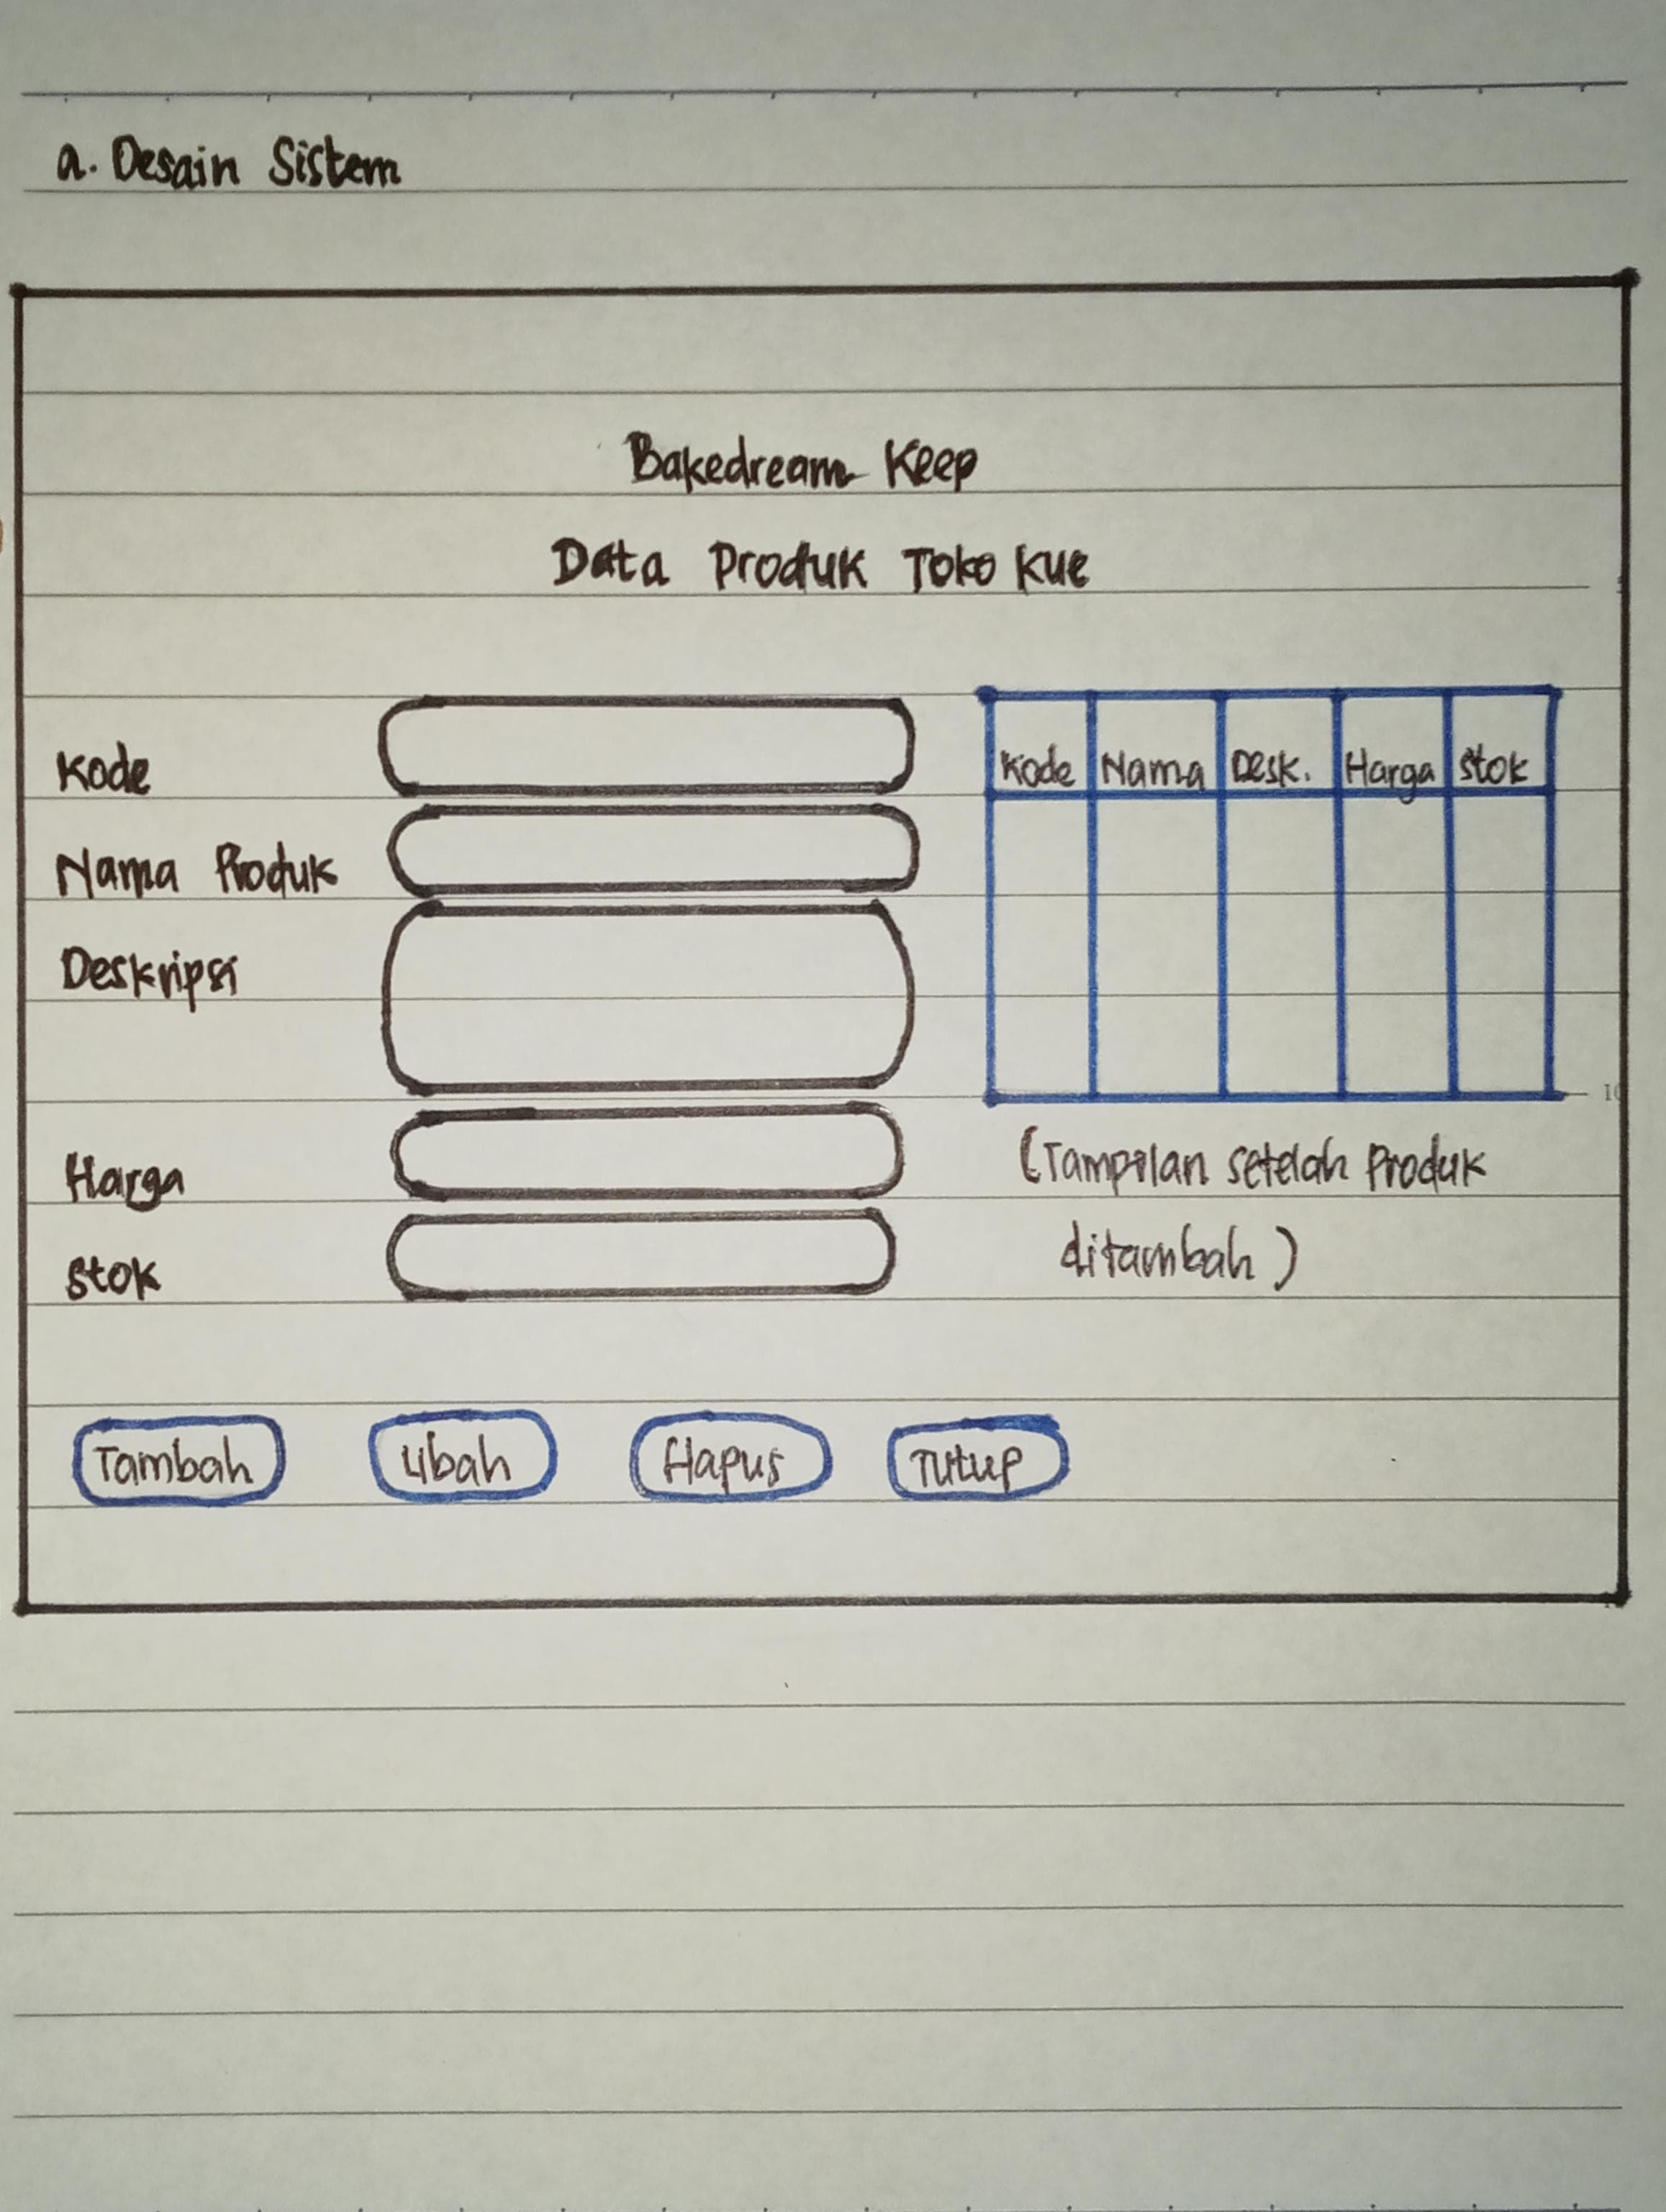 a. Desain Sistem
Bakedream Keep
Data Produk Toko Kue
Kode
Nama Produk
Deskripsi
Harga
Stok
Kode Nama Desk. Harga Stok
(Tampilan setelah Produk
ditambah)
Tambah Ubah Hapus Tutup
10